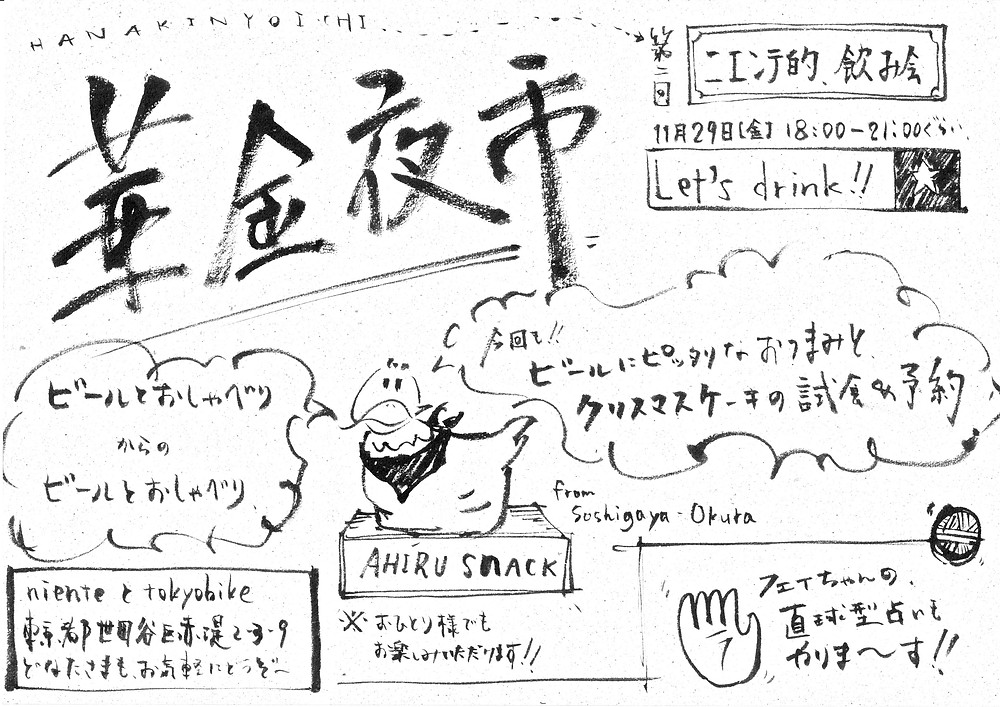 HANAKINYOICHI
第二回
ニエンテ的、飲み会
華金夜市
11月29日[金] 18:00-21:00ぐらい
Let's drink!!
今回も!!
ビールにピッタリなおつまみと、
クリスマスケーキの試食&予約
ビールとおしゃべり
からの
ビールとおしゃべり
from
Soshigaya-Okura
AHIRU SNACK
※おひとり様でも
お楽しみいただけます!!
niente と tokyobike
東京都世田谷区赤堤2-3-9
どなたさまも、お気軽にどうぞ〜
フェイちゃんの、
直球型占いも
やりま〜す!!